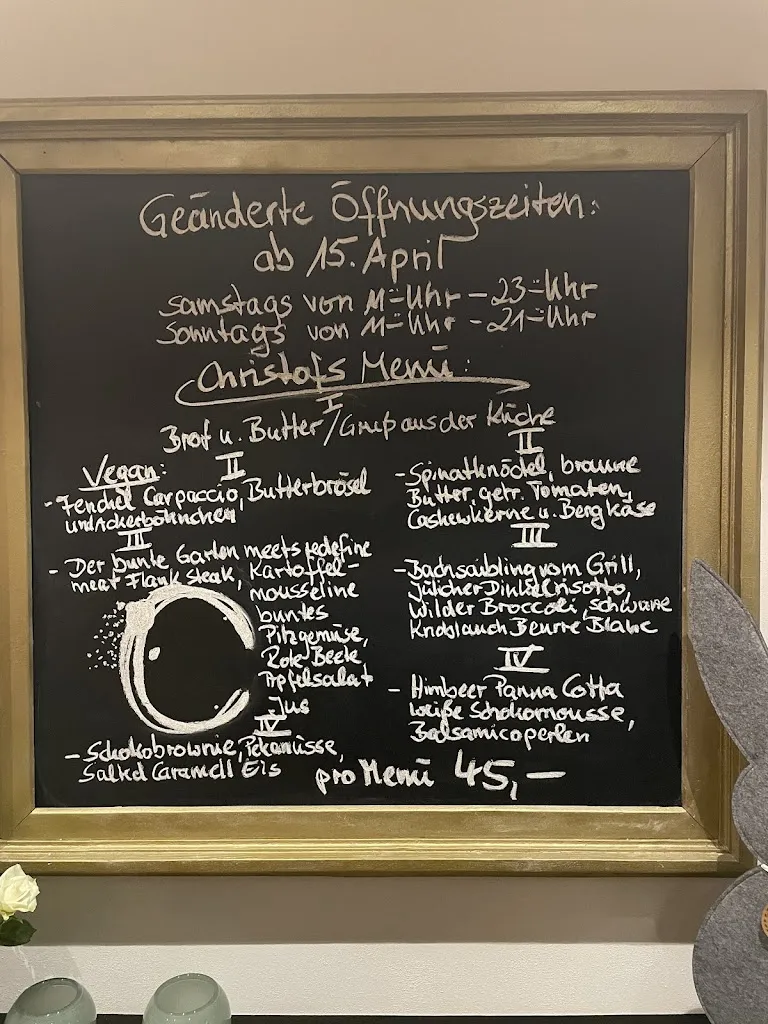 Geänderte Öffnungszeiten:
ab 15. April
samstags von 11-Uhr – 23-Uhr
Sonntags von 11-Uhr – 21-Uhr
Christofs Menü:
I
Brot u. Butter / Gruß aus der Küche
Vegan:
II
- Fenchel Carpaccio, Butterbrösel
und Ackerböhnchen
III
- Der bunte Garten meets redefine
meat Flank steak, Kartoffel-
mousseline
buntes
Pilzgemüse,
Rote Beete
Apfelsalat
Jus
IV
- Schokobrownie, Pekanüsse,
Salted Caramell Eis
II
- Spinatknödel, braune
Butter, getr. Tomaten,
Cashewkerne u. Bergkäse
III
- Bachsaibling vom Grill,
Jülicher Dinkelrisotto,
wilder Broccoli, schwarze
Knoblauch Beurre Blanc
IV
- Himbeer Panna Cotta
weiße Schokomousse,
Balsamicoperlen
pro Menü 45,–